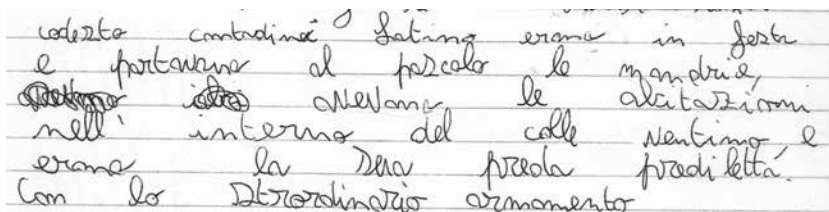 codesto contadine latino erano in festa
e portavano al pascolo le mandrie,
avevano le abitazioni
nell' interno del colle Ventimo e
erano la sera preda prediletta.
Con lo straordinario armamento